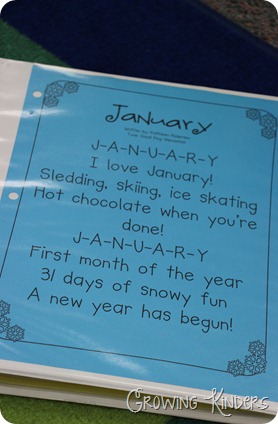 January
Written by Kathleen Pedersen
Tune: Good Boy Yankee
J-A-N-U-A-R-Y
I love January!
Sledding, skiing, ice skating
Hot chocolate when you're
done!
J-A-N-U-A-R-Y
First month of the year
31 days of snowy fun
A new year has begun!
Growing Kinders